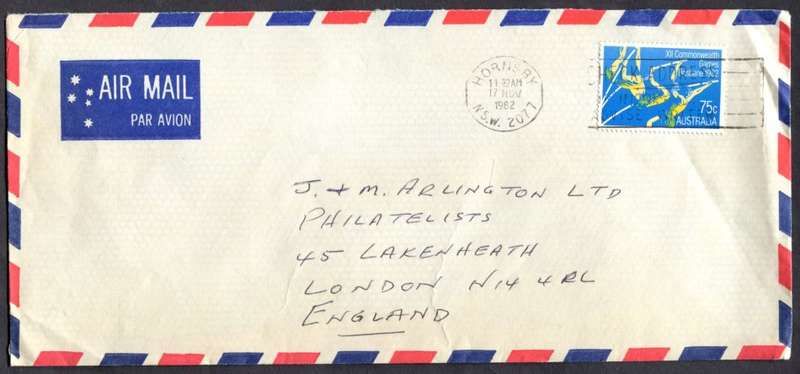 AIR MAIL
PAR AVION
HORNSBY
17 NOV
1982
N.S.W. 2077
XII Commonwealth
Games
Brisbane 1982
75c
AUSTRALIA
J. + M. ARLINGTON LTD
PHILATELISTS
45 LAKENHEATH
LONDON N14 4RL
ENGLAND